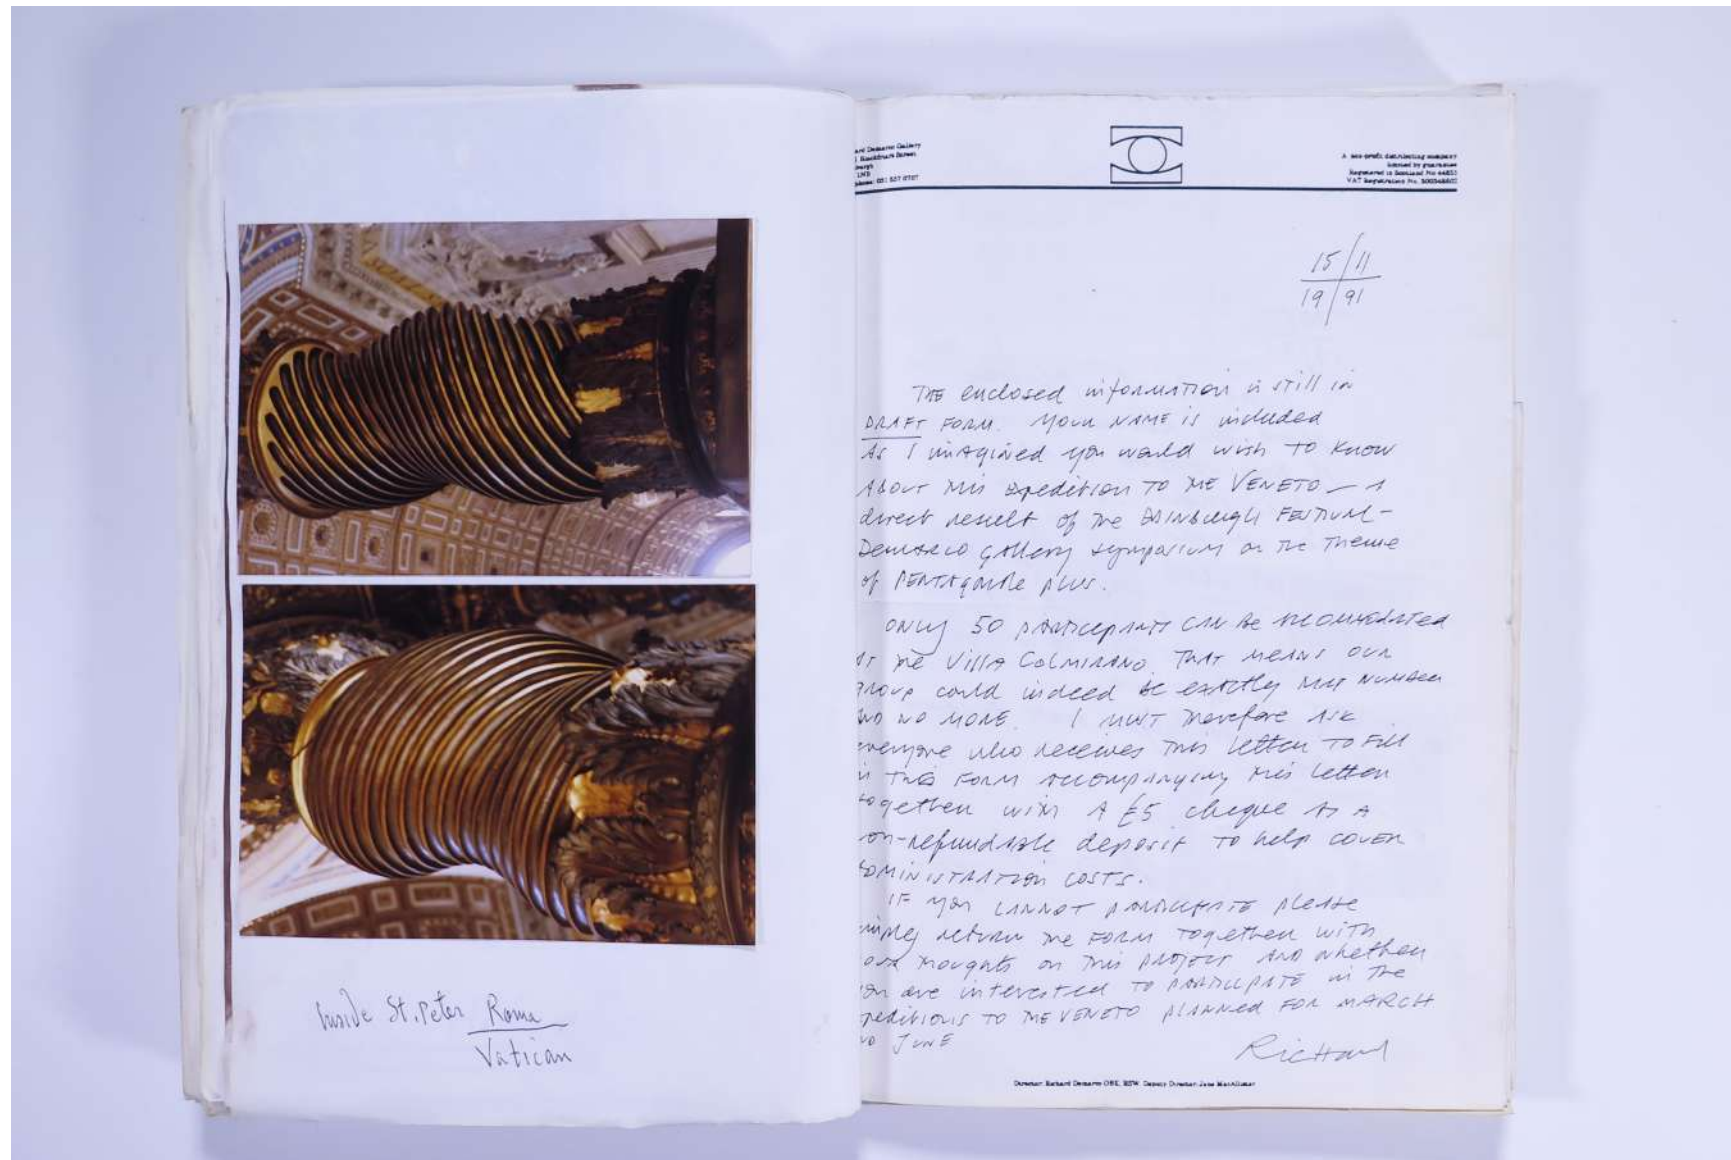 Inside St. Peter Roma
Vatican
ard Demarco Gallery
Blackfriars Street
burgh
1NB
ephone: 031 557 0707
A non-profit distributing company
limited by guarantee
Registered in Scotland No
VAT Registration No.
15/11
19/91
THE enclosed information is still in
DRAFT FORM. YOUR NAME is included
As I imagined you would wish to know
About this expedition to the VENETO — A
direct result of the EDINBURGH FESTIVAL-
Demarco Gallery symposium on the theme
of PENTAgonale plus.
ONLY 50 participants can be accommodated
At the Villa Colmirano. That means our
group could indeed be exactly that number
and no more. I must therefore ask
everyone who receives this letter to fill
in this form accompanying this letter
together with A £5 cheque as a
on-refundable deposit to help cover
dministration costs.
IF you cannot participate please
imply return the form together with
our thoughts on this project and whether
you are interested to participate in the
peditions to the VENETO planned FOR MARCH
nd JUNE
Richard
Director: Richard Demarco OBE, RSW. Deputy Director: Jane MacAllister